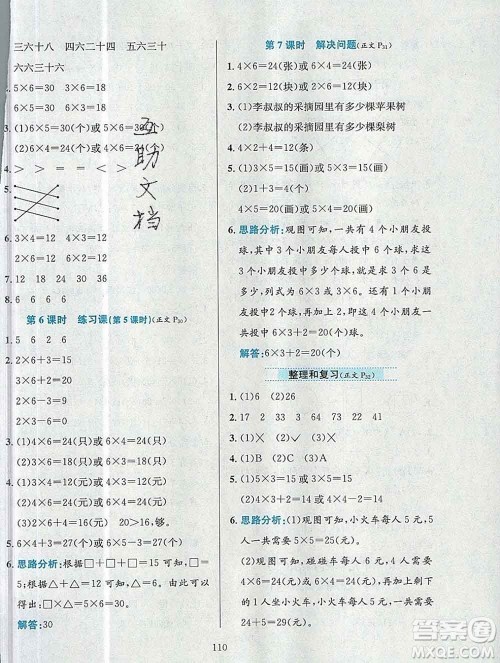 三六十八 四六二十四 五六三十
六六三十六
4. 5×6=30 3×6=18
6×5=30 6×3=18
3. (1)6×5=30(个)或5×6=30(个)
(2)4×6=24(个)或6×4=24(个)
4. > > = < = <
5.
6. 3×4=12 4×3=12
6×3=18 3×6=18
7. 12 18 24 30 36
8. 6 6 6 6
第6课时 练习课(第5课时)(正文P30)
1. 5 6 6 2
2. 6×2+3=15
3×6+2=20
6×3-3=15
2×6-3=9
3. (1)4×6=24(只)或6×4=24(只)
(2)3×6=18(只)或6×3=18(只)
4. (1)3×6=18(元)或6×3=18(元)
(2)4×6=24(元)或6×4=24(元)
(3)3×6=18(元) 20>18,够
5. 6×4+3=27(个)
6. 思路分析:根据□+□+□=□
和□+□+△=△,可以得出
△=□+□+□+□,所以可以
得出:□×△=5×6=30
解答:30
互助文档
第7课时 解决问题(正文P31)
1. 4×6=24(张)或6×4=24(张)
2. (1)李叔叔的采摘园里有多少棵苹果树
(2)李叔叔的采摘园里有多少棵梨树
3. 4×2+4=12(条)
4. 3×5=15(画)或5×3=15(画)
4×5=20(画)或5×4=20(画)
6. 思路分析:观图可知,一共有4个小朋友
投球,其中3个小朋友每人投中6个球,
求3个小朋友投中多少个球,就是求3个
6是多少,用乘法计算,再加上剩下的小
朋友投中的2个球,就是一共投中球的
个数。
解答:6×3+2=20(个)
整理和复习(正文P32)
1. (1)6 (2)26
2. 17 34 66 73 23 41
3. (1)× (2)√
4. (1)B (2)C (3)A
5. (1)5×3=15 或 3×5=15
(2)3×4+2=14
6. 思路分析:(1)观图可知,小火车每人5
元,4人需要多少元,就是求4个5是多
少,用乘法计算。
(2)观图可知,碰碰车每人6元,4人需要
4×6=24(元),再加上剩下的
1人坐小火车需要的5元,一共需要
24+5=29(元)。
110
答案圈
MXQE.COM